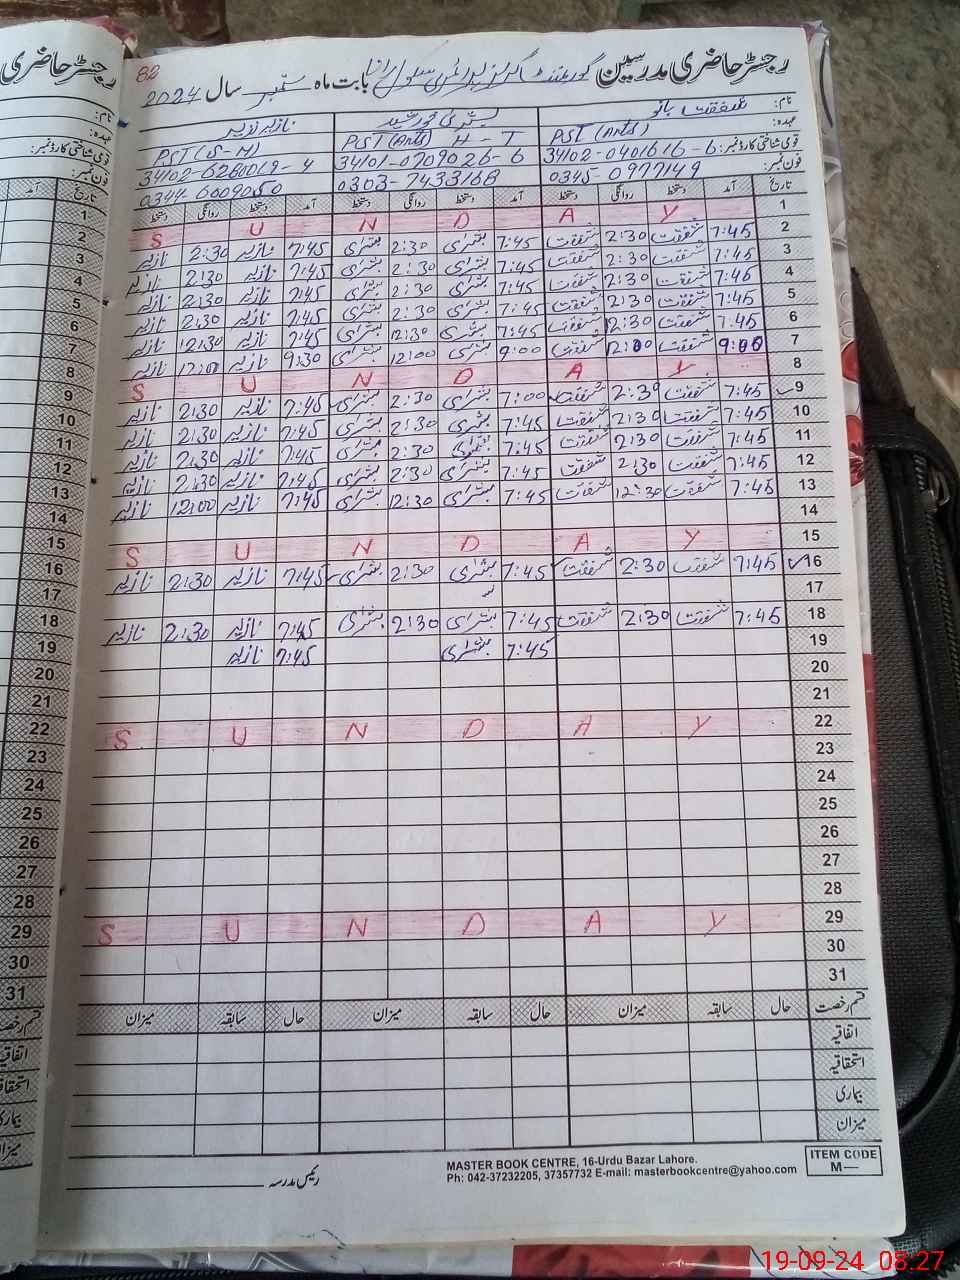 رجسٹر حاضری مدرسین گورنمنٹ گرلز پرائمری سکول بابت ماہ ستمبر سال 2024
82
نام: شفقت بانو بشریٰ خورشید نازیہ نذیر
عہدہ: PST (Arts) PST (Arts) H-T PST (S-M)
قومی شناختی کارڈ نمبر: 34102-0401616-6 34101-0709026-6 34102-6280019-4
فون نمبر: 0345-0977149 0303-7433168 0344-6009050
تاریخ آمد دستخط روانگی دستخط آمد دستخط روانگی دستخط آمد دستخط روانگی دستخط
1 S U N D A Y
2 7:45 شفقت 2:30 شفقت 7:45 بشریٰ 2:30 بشریٰ 7:45 نازیہ 2:30 نازیہ
3 7:45 شفقت 2:30 شفقت 7:45 بشریٰ 2:30 بشریٰ 7:45 نازیہ 2:30 نازیہ
4 7:45 شفقت 2:30 شفقت 7:45 بشریٰ 2:30 بشریٰ 7:45 نازیہ 2:30 نازیہ
5 7:45 شفقت 2:30 شفقت 7:45 بشریٰ 2:30 بشریٰ 7:45 نازیہ 2:30 نازیہ
6 7:45 شفقت 12:30 شفقت 7:45 بشریٰ 12:30 بشریٰ 7:45 نازیہ 12:30 نازیہ
7 9:00 شفقت 12:00 شفقت 9:00 بشریٰ 12:00 بشریٰ 9:30 نازیہ 12:00 نازیہ
8 S U N D A Y
9 7:45 شفقت 2:30 شفقت 7:00 بشریٰ 2:30 بشریٰ 7:45 نازیہ 2:30 نازیہ
10 7:45 شفقت 2:30 شفقت 7:45 بشریٰ 2:30 بشریٰ 7:45 نازیہ 2:30 نازیہ
11 7:45 شفقت 2:30 شفقت 7:45 بشریٰ 2:30 بشریٰ 7:45 نازیہ 2:30 نازیہ
12 7:45 شفقت 2:30 شفقت 7:45 بشریٰ 2:30 بشریٰ 7:45 نازیہ 2:30 نازیہ
13 7:45 شفقت 12:30 شفقت 7:45 بشریٰ 12:30 بشریٰ 7:45 نازیہ 12:00 نازیہ
14
15 S U N D A Y
16 7:45 شفقت 2:30 شفقت 7:45 بشریٰ 2:30 بشریٰ 7:45 نازیہ 2:30 نازیہ
17
18 7:45 شفقت 2:30 شفقت 7:45 بشریٰ 2:30 بشریٰ 7:45 نازیہ 2:30 نازیہ
19 7:45 بشریٰ 7:45 نازیہ
20
21
22 S U N D A Y
23
24
25
26
27
28
29 S U N D A Y
30
31
قسم رخصت حال سابقہ میزان حال سابقہ میزان حال سابقہ میزان
اتفاقیہ
استحقاقیہ
بیماری
میزان
رئیس مدرسہ
MASTER BOOK CENTRE, 16-Urdu Bazar Lahore.
Ph: 042-37232205, 37357732 E-mail: masterbookcentre@yahoo.com
ITEM CODE
M—
رجسٹر حاضری
نام:
عہدہ:
قومی شناختی کارڈ نمبر:
فون نمبر:
تاریخ آمد
1
2
3
4
5
6
7
8
9
10
11
12
13
14
15
16
17
18
19
20
21
22
23
24
25
26
27
28
29
30
31
قسم رخصت
اتفاقیہ
19-09-24 08:27